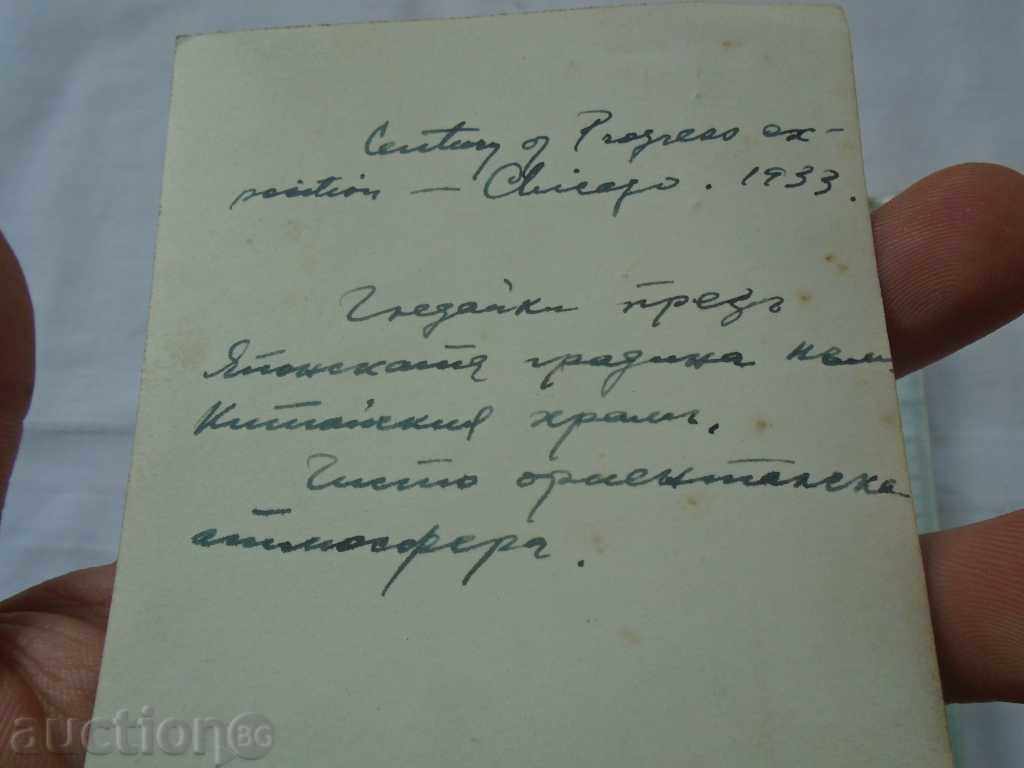 Century of Progress ex-
position — Chicago. 1933.
Гледайки презъ
Японската градина към
Китайския храмъ.
Чисто ориенталска
атмосфера.
auction BG